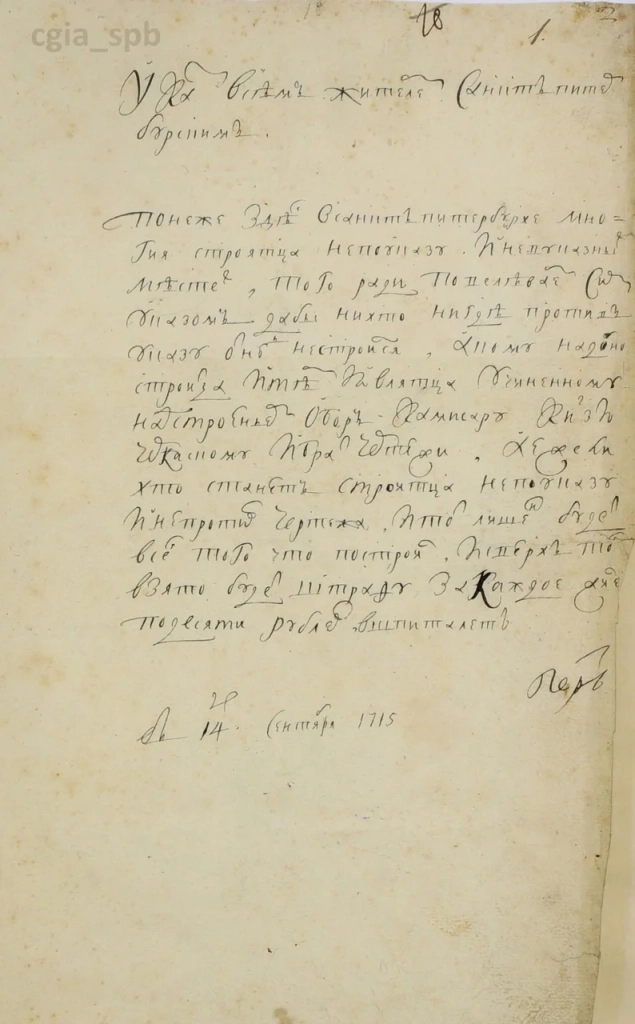 cgia_spb
18
1.
Указ всѣмъ жителем Санктъпитер
бурскимъ.
понеже здѣс всанктъпитербурхе мно=
гия строятца непоуказу. И невуказных
мѣстех, того ради повелѣваем Сим
указомъ дабы нихто нигдѣ противъ
указу
нестроился, Акому надобно
строица Итѣ Иявляптца Учиненному
надстроением Оборъ-Камисару Князю
Черкасному Ибрат чертежи. Аежели
хто станетъ строитца непоуказу
Инепротив чертежа, Итот лишен будет
всего того что построил, Исверхъ того
взято будет штрафу Закаждое
подесяти рублев, вшпиталетъ
Петръ
въ 14. Сентября 1715